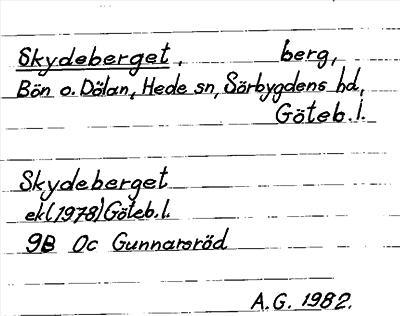 Skydeberget, berg,
Bön o. Dölan, Hede sn, Sörbygdens hd,
Göteb. l.
Skydeberget
ek (1978) Göteb. l.
9B 0c Gunnarsröd
A.G. 1982.